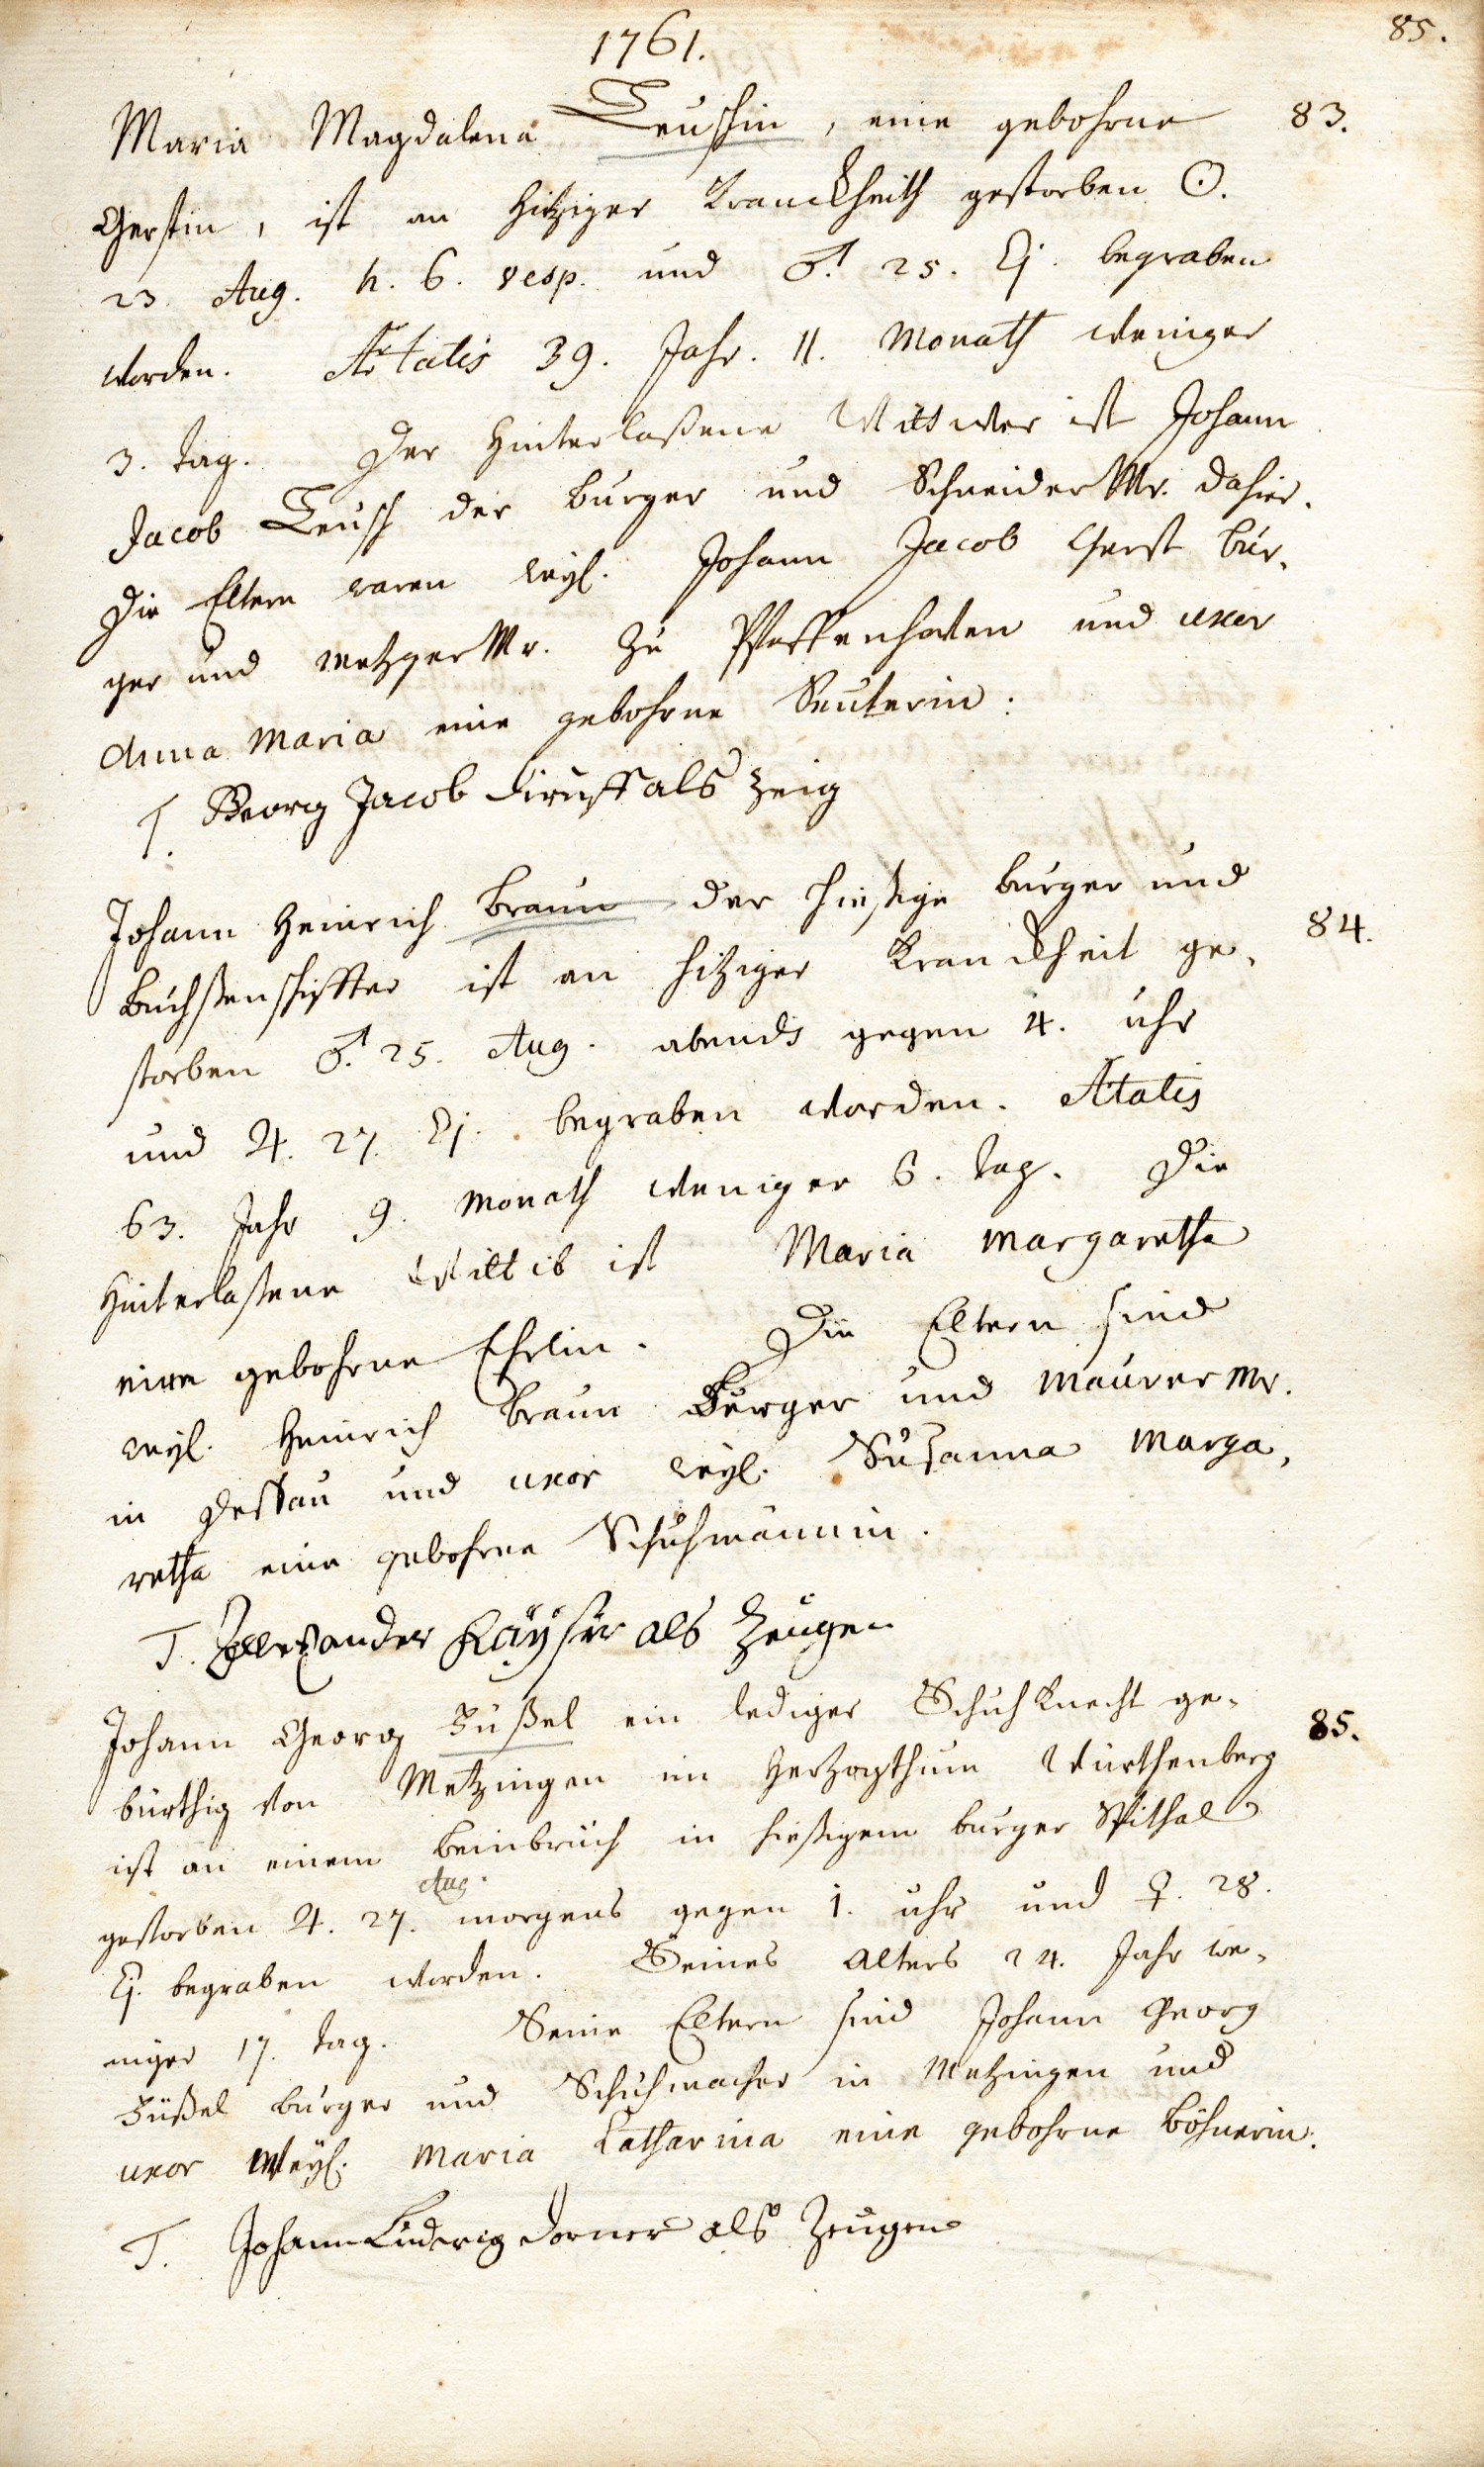 85.
1761.
Maria Magdalena Teuschin, eine gebohrne 83.
Gerstin, ist an hitziger Kranckheith gestorben ☉.
23. Aug. h. 6. vesp. und ♂. 25. Ej. begraben
worden. Ætatis 39. Jahr. 11. Monath weniger
3. tag. Der Hinterlaßene Wittwer ist Johann
Jacob Teusch der burger und Schneider Mr. dahier.
Die Eltern waren weyl. Johann Jacob Gerst bur-
ger und Metzger Mr. zu Pfaffenhoven und uxor
Anna Maria eine gebohrne Suterin.
T. Georg Jacob als zeig
Johann Heinrich Braun der hießige burger und 84.
Buchßenschiffter ist an hitziger Kranckheit ge-
storben ♂. 25. Aug. abends gegen 4. uhr
und ♃. 27. Ej. begraben worden. Ætatis
63. Jahr 9. Monath weniger 6. tag. Die
Hinterlaßene Wittib ist Maria Margaretha
eine gebohrne Ehrlin. Die Eltern sind
weyl. Heinrich Braun Burger und Maurer Mr.
in Dessau und uxor weyl. Susanna Marga-
retha eine gebohrne Schuhmännin.
T. Allexander Kayser als Zeugen
Johann Georg Füßel ein lediger Schuh Knecht ge- 85.
bürthig von Metzingen im Herzogthum Würthenberg
ist an einem Beinbruch in hießigem burger Spithal
gestorben ♃. 27. Aug. morgens gegen 1. uhr und ♀. 28.
Ej. begraben worden. Seines Alters 24. Jahr we-
niger 17. tag. Seine Eltern sind Johann Georg
Füßel burger und Schuhmacher in Metzingen und
uxor Weyl. Maria Catharina eine gebohrne Böhnerin.
T. Johann Ludwig Dorner als Zeugen